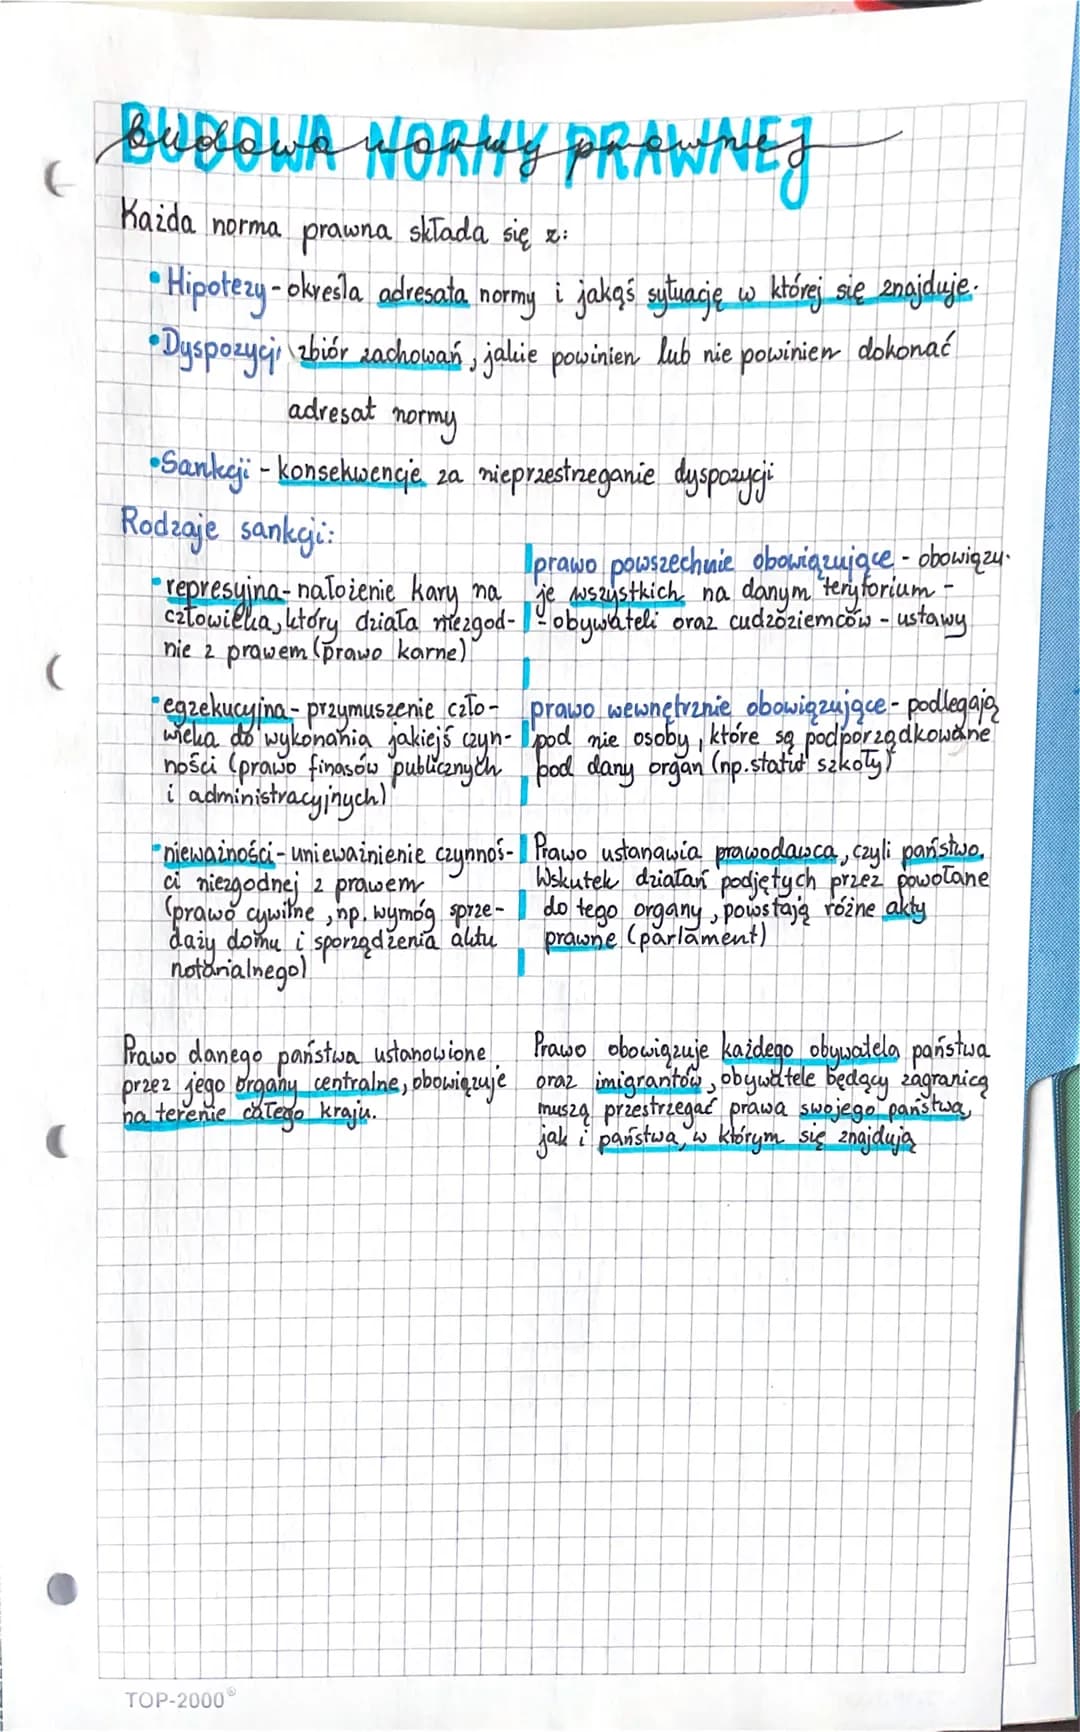 BUDOWA NORMY PRAWNEJ
budowa normy prawnej
Każda norma prawna składa się z:
•Hipotezy - określa adresata normy i jakąś sytuację w której się znajduje.
•Dyspozycji zbiór zachowań, jakie powinien lub nie powinien dokonać
adresat normy
•Sankcji - konsekwencje za nieprzestrzeganie dyspozycji
Rodzaje sankcji:
•represyjna - nałożenie kary na
człowieka, który działa niezgod-
nie z prawem (prawo karne)
•egzekucyjna - przymuszenie czło-
wieka do wykonania jakiejś czyn-
ności (prawo finasów publicznych
i administracyjnych)
•nieważności - unieważnienie czynnoś-
ci niezgodnej z prawem
(prawo cywilne, np. wymóg sprze-
daży domu i sporządzenia aktu
notarialnego)
prawo powszechnie obowiązujące - obowiązu-
je wszystkich na danym terytorium -
- obywateli oraz cudzoziemców - ustawy
prawo wewnętrznie obowiązujące - podlegają
pod nie osoby, które są podporządkowane
pod dany organ (np. statut szkoły)
Prawo ustanawia prawodawca, czyli państwo.
Wskutek działań podjętych przez powołane
do tego organy, powstają różne akty
prawne (parlament)
Prawo danego państwa ustanowione
przez jego organy centralne, obowiązuje
na terenie całego kraju.
Prawo obowiązuje każdego obywatela państwa
oraz imigrantów, obywatele będący zagranicą
muszą przestrzegać prawa swojego państwa,
jak i państwa, w którym się znajdują
TOP-2000®